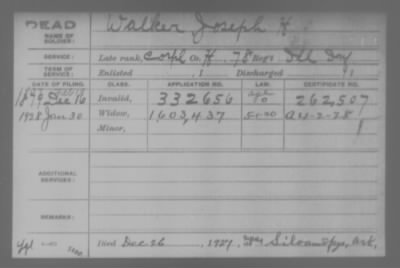 DEAD
NAME OF SOLDIER: Walker Joseph H
SERVICE: Late rank, Corpl Co. H, 78 Reg't Ill Inf
TERM OF SERVICE: Enlisted , 1 Discharged , 1
DATE OF FILING. CLASS. APPLICATION NO. LAW. CERTIFICATE NO.
1879 Dec 16 Invalid, 332656 262,507
1928 Jan 30 Widow, 1603,437 a4-2-28
Minor,
ADDITIONAL SERVICES:
REMARKS:
Died Dec 26, 1927, Siloam Spgs, Ark,